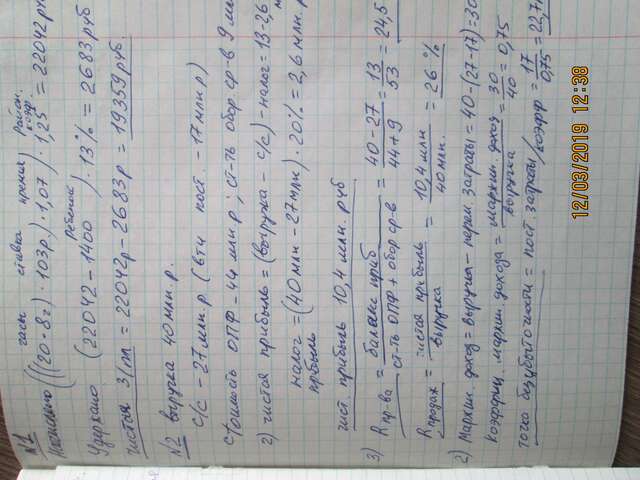 №1 часы ставка премия район. коэф
Начислено ((20·8ч)·103р)·1,07)·1,25 = 22042 р
ребенок
Удержано (22042 - 1400)·13% = 2683 руб
чистая З/пл = 22042р - 2683р = 19359 руб.
№2 выручка 40 млн.р.
с/с - 27 млн.р (вти пост. - 17 млн р)
стоимость ОПФ - 44 млн р; ст-ть обор ср-в 9 мл
2) чистая прибыль = (выручка - с/с) - налог = 13 - 2,6
налог = (40 млн - 27 млн)·20% = 2,6 млн.р
прибыль
чист. прибыль 10,4 млн. руб.
3) R пр-ва = баланс приб / ст-ть ОПФ + обор ср-в = 40 - 27 / 44 + 9 = 13 / 53 = 24,5
R продаж = чистая прибыль / выручка = 10,4 млн / 40 млн. = 26 %
2) Маржин. доход = выручка - перем. затраты = 40 - (27 - 17) = 30
Коэффиц. маржин. дохода = маржин. доход / выручка = 30 / 40 = 0,75
точка безубыточности = пост. затраты / коэфф = 17 / 0,75 = 22,7
12/03/2019 12:38